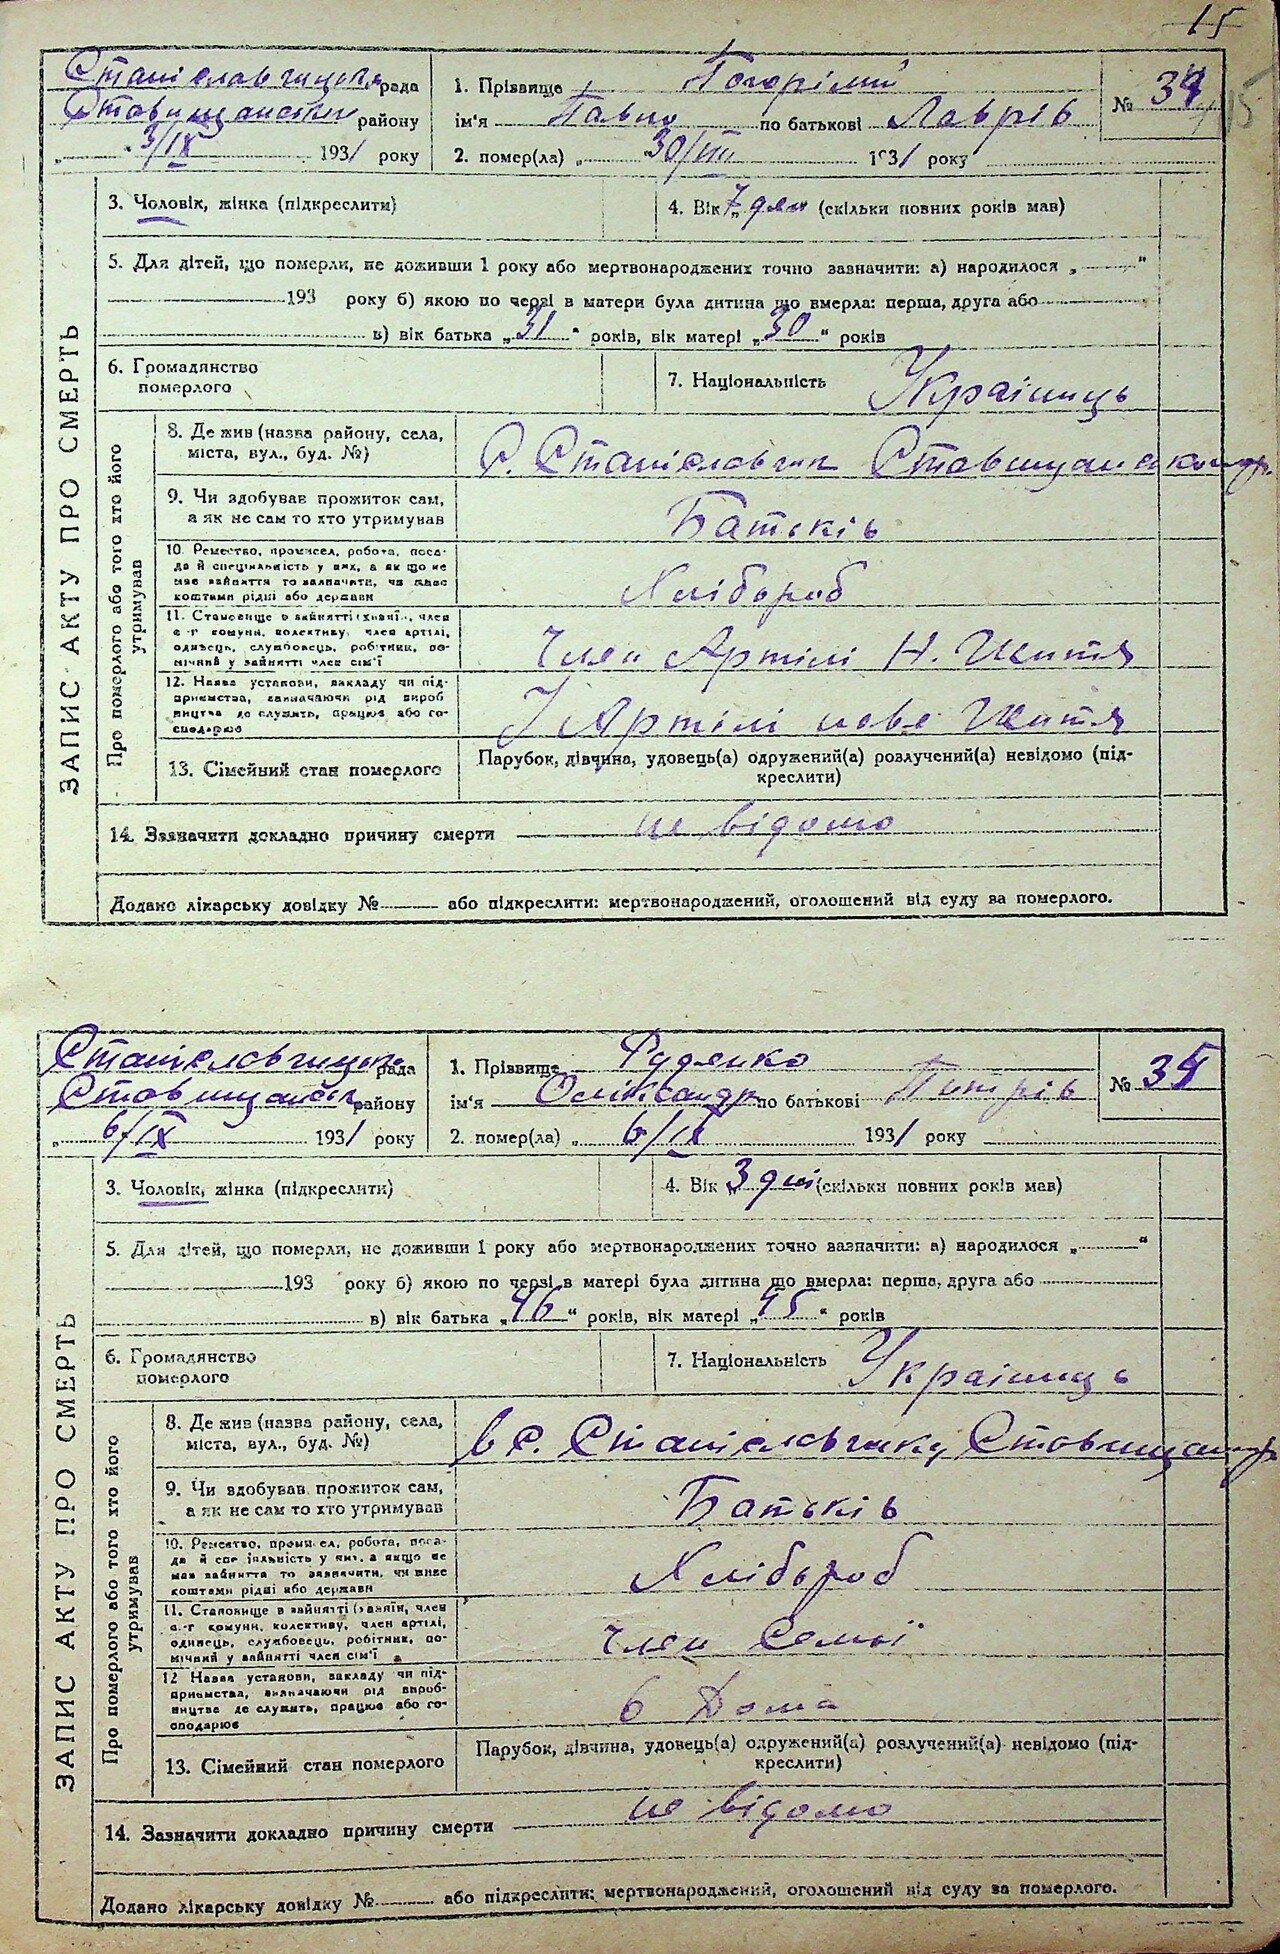 15
Станіславчицька рада
Ставищанськ району
„ 3/IX 1931 року
1. Прізвище Погорілий
ім'я Павло по батькові Лаврів
2. помер(ла) „ 30/VIII 1931 року
№ 34
ЗАПИС АКТУ ПРО СМЕРТЬ
3. Чоловік, жінка (підкреслити)
4. Вік „7 дяв (скільки повних років мав)
5. Для дітей, що померли, не доживши 1 року або мертвонароджених точно зазначити: а) народилося „ “
193 року б) якою по черзі в матери була дитина що вмерла: перша, друга або
в) вік батька „31“ років, вік матері „30“ років
6. Громадянство
померлого
7. Національність Українець
Про померлого або того хто його
утримував
8. Де жив (назва району, села,
міста, вул., буд. №)
С. Станіславчик Ставищанськ р.
9. Чи здобував прожиток сам,
а як не сам то хто утримував
Батьків
10. Ремество, промисел, робота, поса-
да й спеціяльність у них, а як що не
мав зайняття то зазначити, чи живе
коштами рідні або держави
Хлібороб
11. Становище в зайнятті (хазяїн, член
с-г комуни, колективу, член артілі,
одинець, службовець, робітник, по-
мічний у зайнятті член сім'ї
Член Артілі Н. Життя
12. Назва установи, закладу чи під-
приємства, зазначаючи рід вироб
ництва де служить, працює або го-
сподарює
У Артілі нове Життя
13. Сімейний стан померлого
Парубок, дівчина, удовець(а) одружений(а) розлучений(а) невідомо (під-
креслити)
14. Зазначити докладно причину смерти не відомо
Додано лікарську довідку № або підкреслити: мертвонароджений, оголошений від суду за померлого.
Станіславчицька рада
Ставищанськ району
„ 6/IX 1931 року
1. Прізвище Руденко
ім'я Олександр по батькові Питрів
2. помер(ла) „ 6/IX 1931 року
№ 35
ЗАПИС АКТУ ПРО СМЕРТЬ
3. Чоловік, жінка (підкреслити)
4. Вік „3 дні (скільки повних років мав)
5. Для дітей, що померли, не доживши 1 року або мертвонароджених точно зазначити: а) народилося „ “
193 року б) якою по черзі в матері була дитина що вмерла: перша, друга або
в) вік батька „46“ років, вік матері „45“ років
6. Громадянство
померлого
7. Національність Українець
Про померлого або того хто його
утримував
8. Де жив (назва району, села,
міста, вул., буд. №)
в с. Станіславчику Ставищан р
9. Чи здобував прожиток сам,
а як не сам то хто утримував
Батьків
10. Ремество, промисел, робота, поса-
да й спеціяльність у них, а якщо не
мав зайняття то зазначити, чи живе
коштами рідні або держави
Хлібороб
11. Становище в зайнятті (хазяїн, член
с.-г комуни, колективу, член артілі,
одинець, службовець, робітник, по-
мічний у зайнятті член сім'ї
член Семьї
12 Назва установи, закладу чи під-
приємства, зазначаючи рід вироб-
ництва де служить, працює або го-
сподарює
в Дома
13. Сімейний стан померлого
Парубок, дівчина, удовець(а) одружений(а) розлучений(а) невідомо (під-
креслити)
14. Зазначити докладно причину смерти не відомо
Додано лікарську довідку № або підкреслити: мертвонароджений, оголошений від суду за померлого.